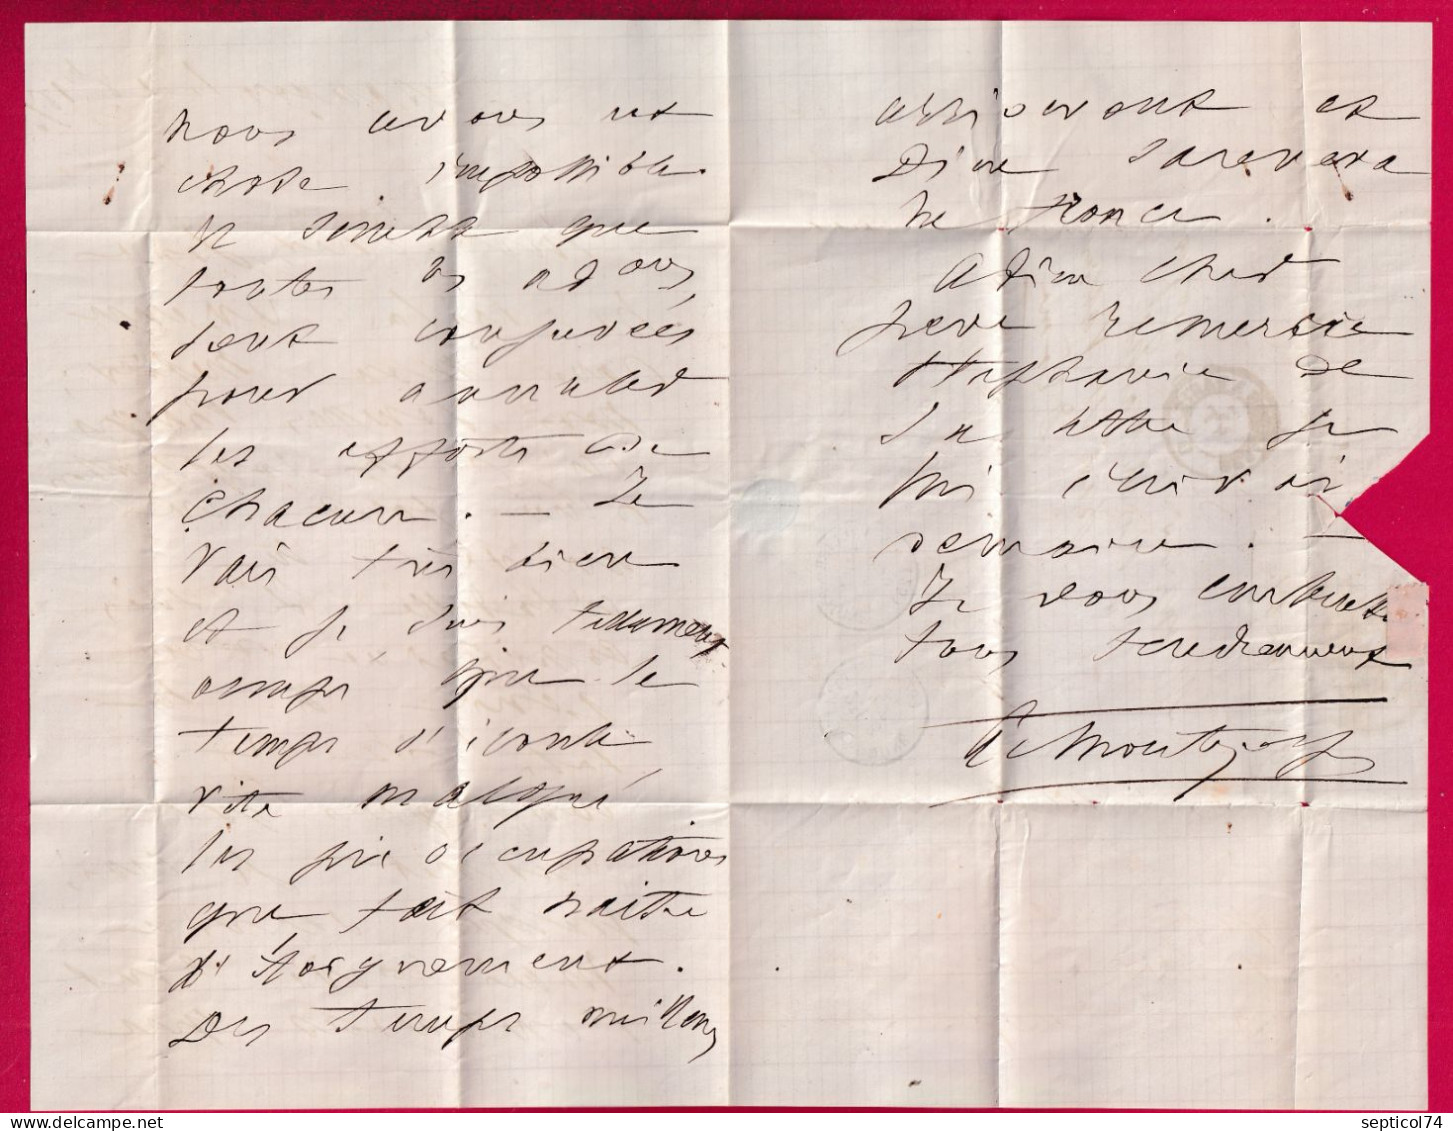 nous avons est
chose impossible.
Il semble que
toutes les
sont conjurées
pour annuler
les efforts de
chacun. — Je
vais très bien
et je suis tellement
occupé que le
temps s'écoule
vite malgré
les préoccupations
que fait naitre
l'éloignement.
Des temps meilleurs
arriveront et
Dieu sauvera
la France.
Adieu cher
père remercie
Stéphanie de
sa lettre je
lui écrirai
demain. —
Je vous embrasse
tous tendrement
de Montgolfier
septicol74